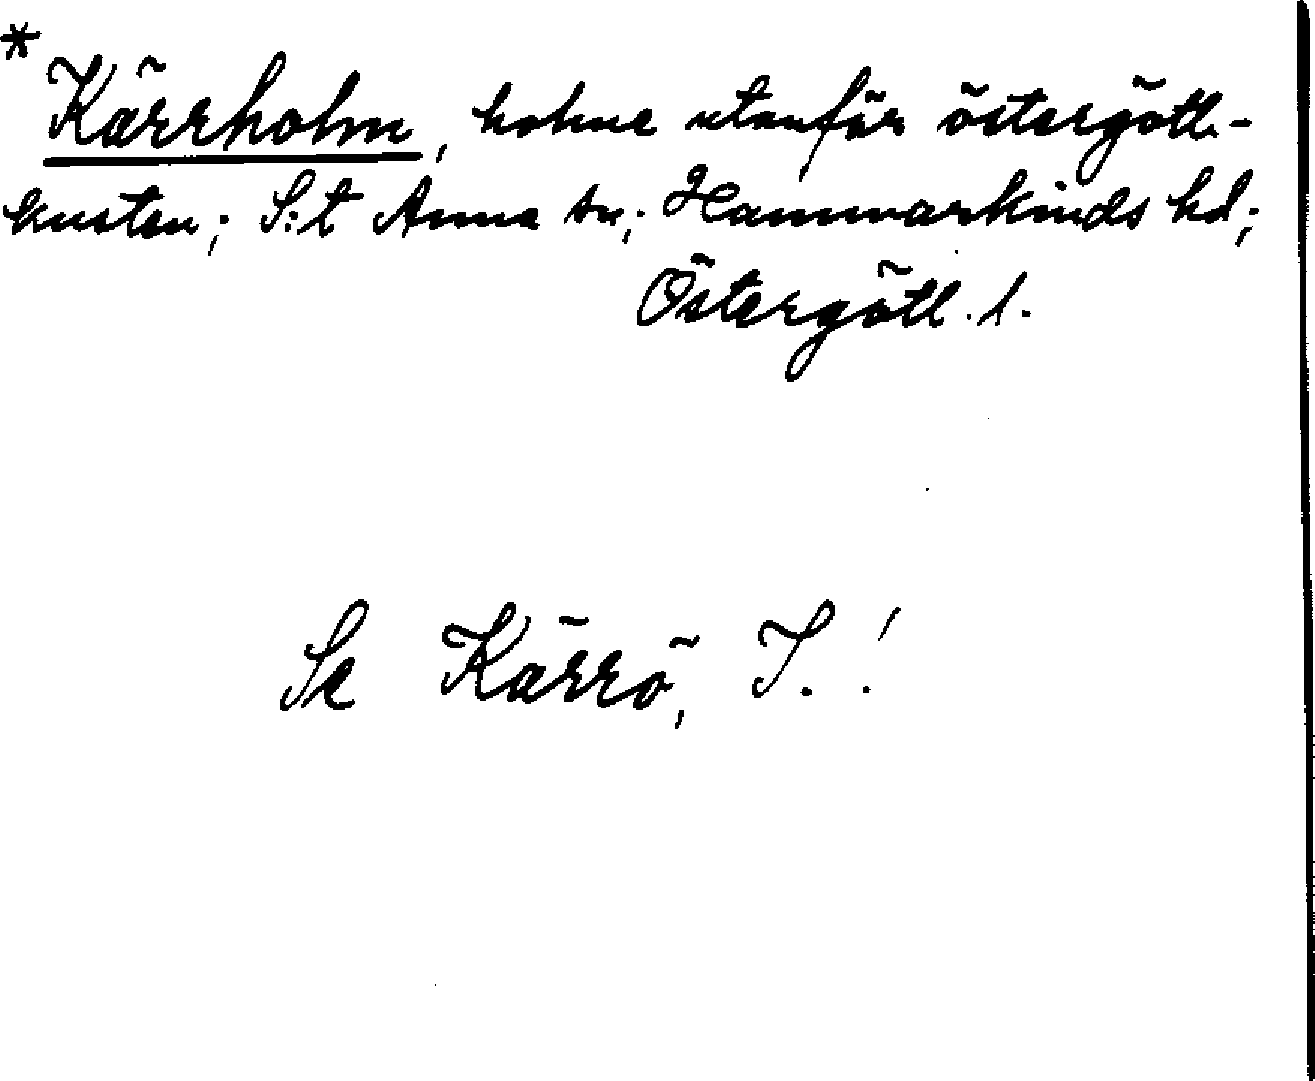 * Kärrholm, holme utanför östergötl.-
kusten; S:t Anna sn; Hammarkinds hd;
Östergötl. l.
Se Kärrö, I.!